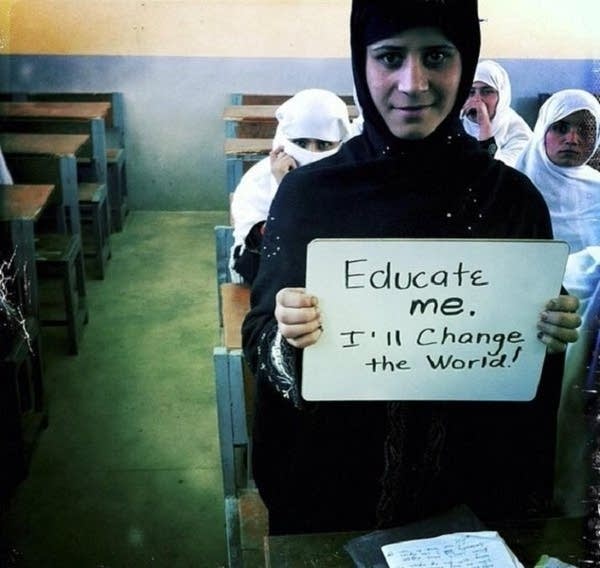 Educate
me.
I'll Change
the World!